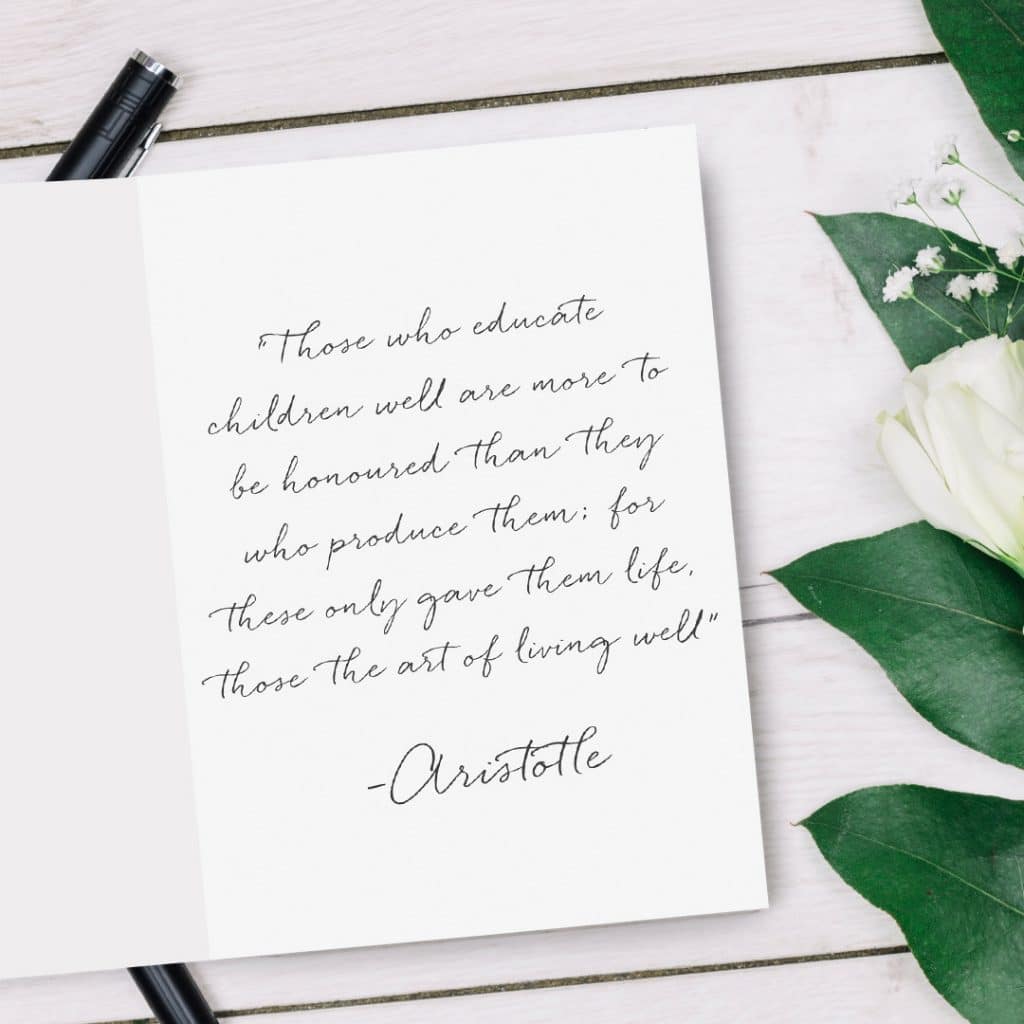 "Those who educate
children well are more to
be honoured than they
who produce them; for
these only gave them life,
those the art of living well"
-Aristotle